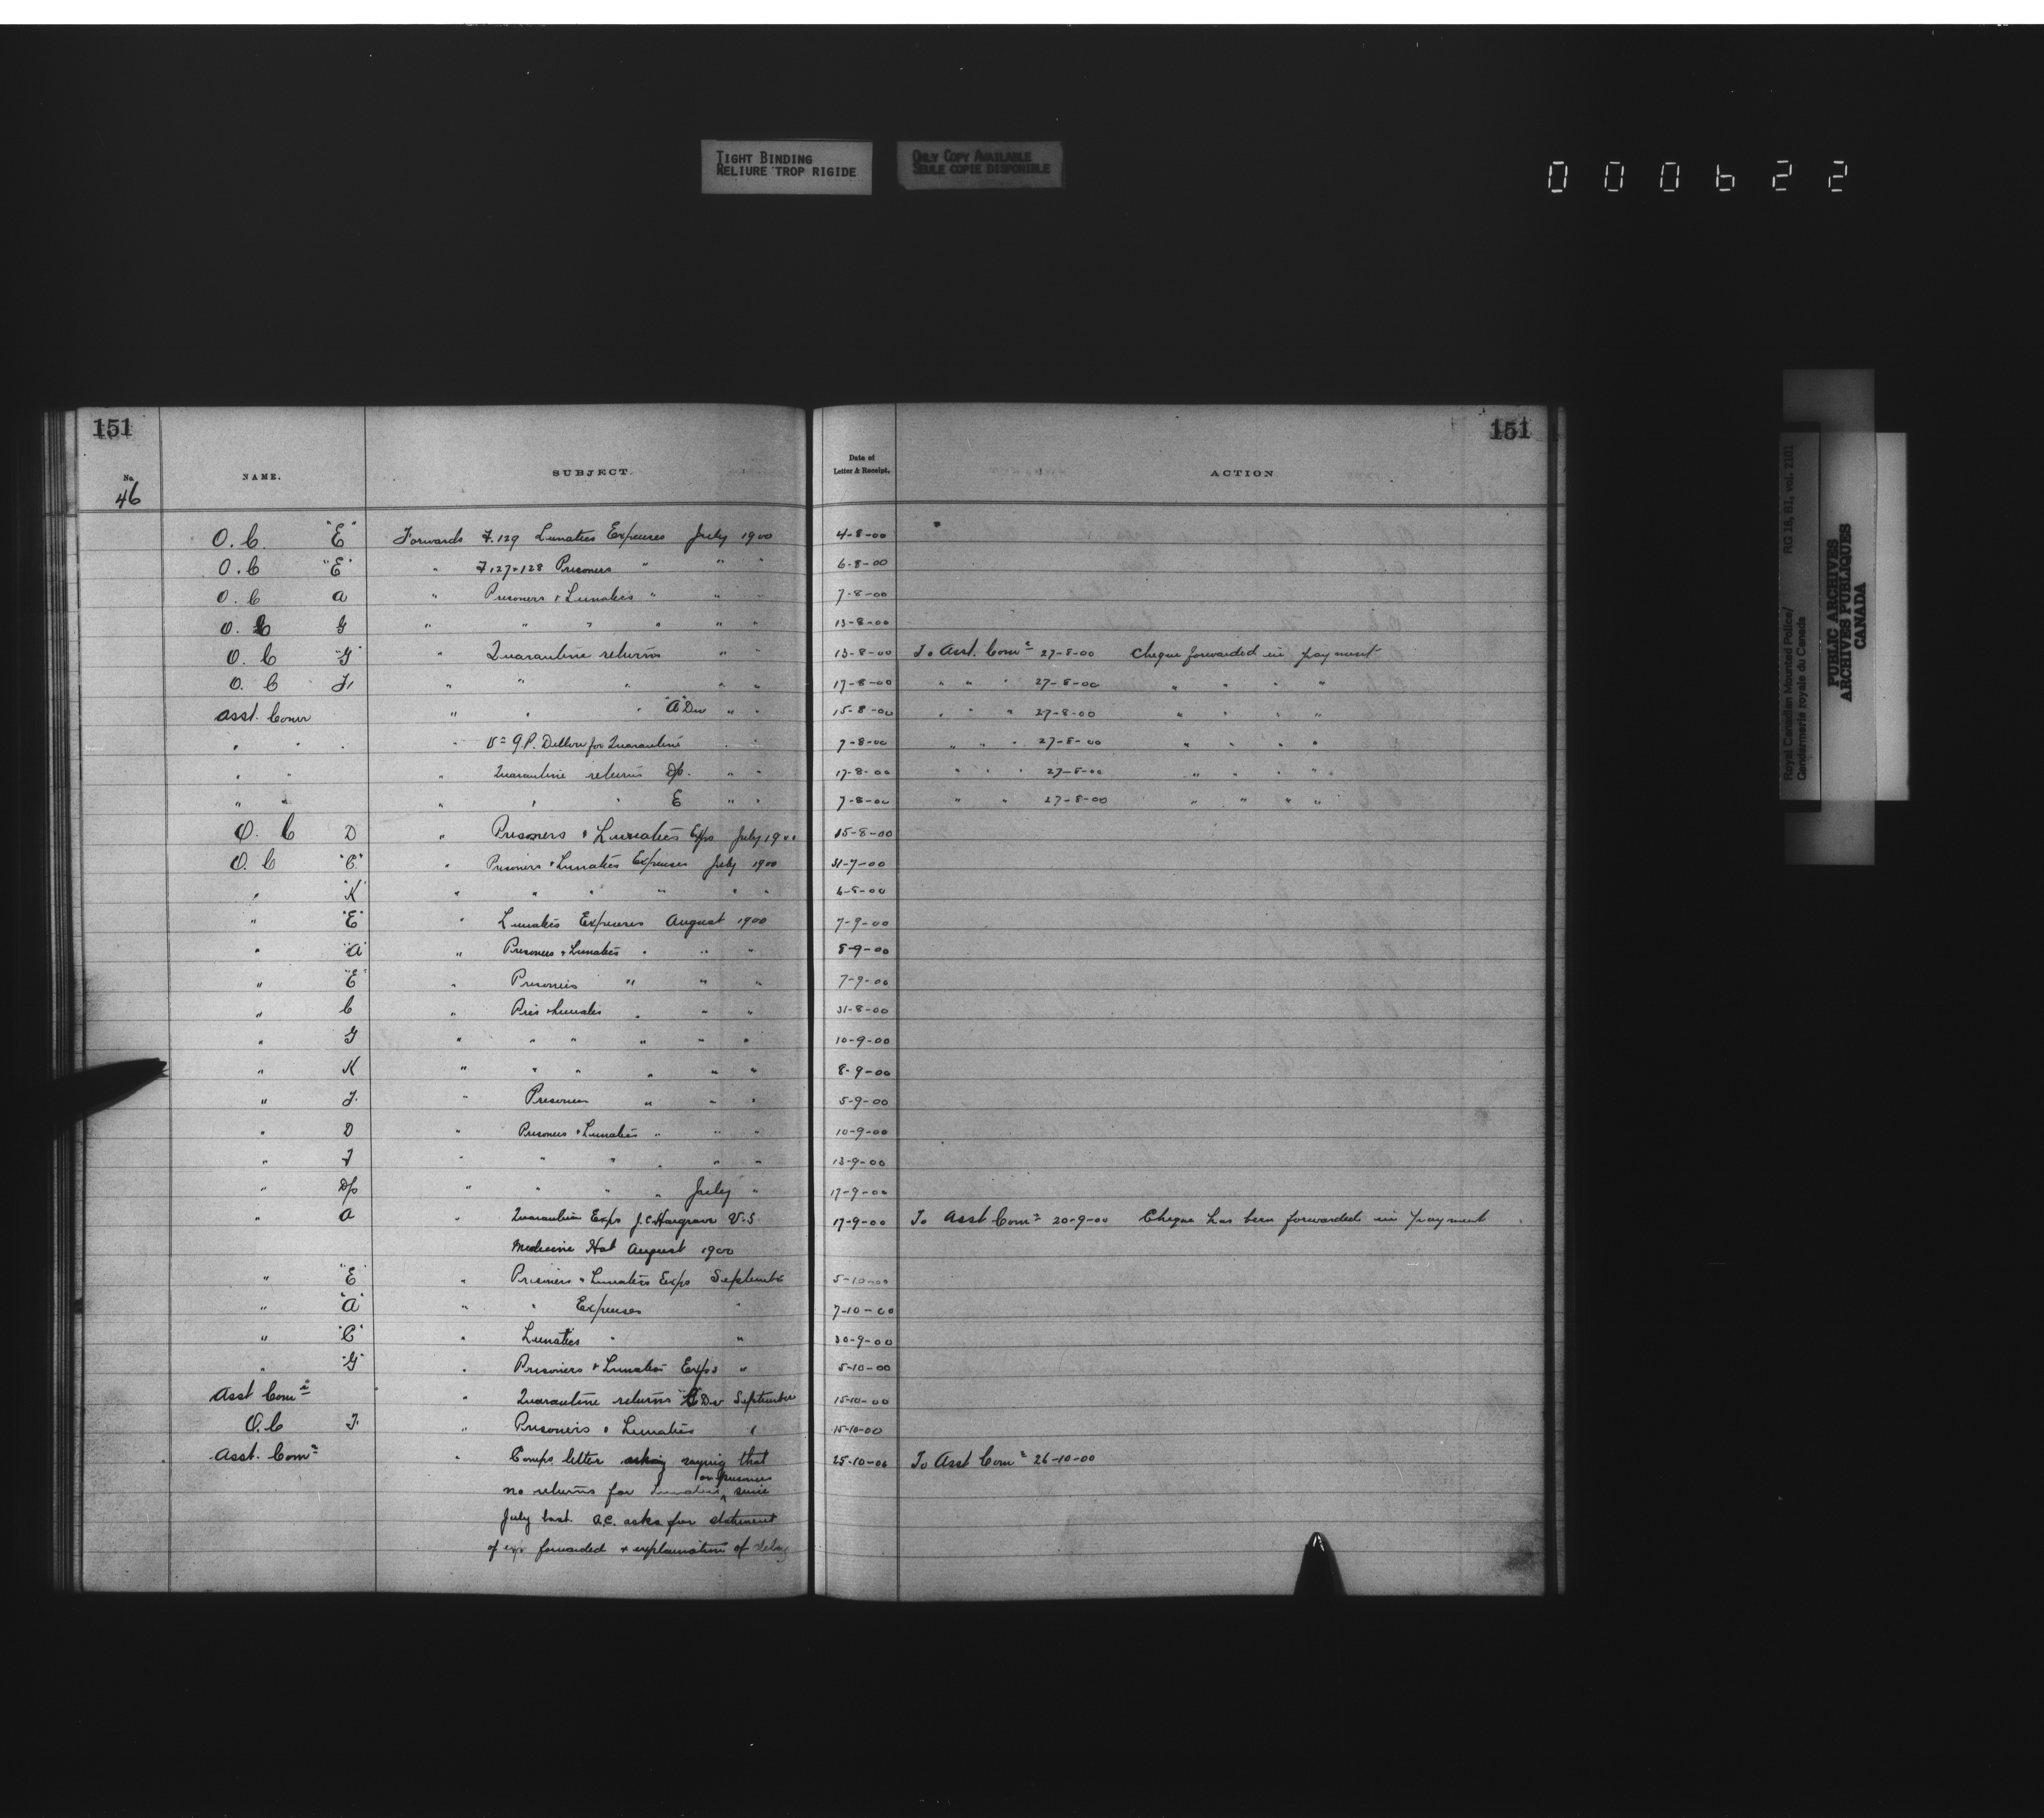 TIGHT BINDING
RELIURE TROP RIGIDE
ONLY COPY AVAILABLE
SEULE COPIE DISPONIBLE
000622
151 151
No. NAME. SUBJECT. Date of Letter & Receipt. ACTION
46
O. C. "E" Forwards F.129 Lunatics Expenses July 1900 4-8-00
O. C "E" " F127+128 Prisoners " " " 6-8-00
O. C A " Prisoners & Lunatics " " " 7-8-00
O. C G " " " " " " 13-8-00
O. C "G" " Quarantine returns " " 13-8-00 To Asst. Comr 27-8-00 Cheque forwarded in payment
O. C F " " " " " 17-8-00 " " " 27-8-00 " " " "
Asst. Comr " " " "A" Div " " 15-8-00 " " " 27-8-00 " " " "
" " " " G.P. for Quarantine " " 7-8-00 " " " 27-8-00 " " " "
" " " Quarantine returns Dp. " " 17-8-00 " " " 27-8-00 " " " "
" " " " " E " " 7-8-00 " " 27-8-00 " " " "
O. C D " Prisoners & Lunatics Exps July 1900 15-8-00
O. C "C" " Prisoners & Lunatics Expenses July 1900 31-7-00
" "K" " " " " " " 6-8-00
" "E" " Lunatics Expenses August 1900 7-9-00
" "A" " Prisoners & Lunatics " " " 8-9-00
" "E" " Prisoners " " " 7-9-00
" C " Pris & Lunatics " " " 31-8-00
" G " " " " " " 10-9-00
" K " " " " " " 8-9-00
" F. " Prisoners " " " 5-9-00
" D " Prisoners & Lunatics " " " 10-9-00
" F " " " " " " 13-9-00
" Dp " " " " July " 17-9-00
" A " Quarantine Exps J.C. Hargrave V.S 17-9-00 To Asst Comr 20-9-00 Cheque has been forwarded in payment
Medicine Hat August 1900
" "E" " Prisoners & Lunatics Exps September 5-10-00
" "A" " " Expenses " 7-10-00
" "C" " Lunatics " " 30-9-00
" "G" " Prisoners & Lunatics Exps " 5-10-00
Asst Comr " Quarantine returns Div September 15-10-00
O.C F. " Prisoners & Lunatics " 15-10-00
Asst. Comr " Comps letter asking saying that 25-10-00 To Asst Comr 26-10-00
or prisoners
no returns for Lunatics since
July last. A.C. asks for statement
of exp forwarded & explanation of delay
Royal Canadian Mounted Police/ RG 18, B1, vol. 2101
Gendarmerie royale du Canada
PUBLIC ARCHIVES
ARCHIVES PUBLIQUES
CANADA